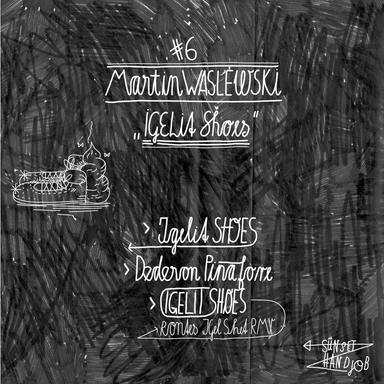 #6
Martin WASLEWSKI
„IGELIT Shoes"
> Igelit SHOES
> Dederon Pinafore
> IGELIT SHOES
RONTES Igel Shit RMX
SUNSET
HANDJOB